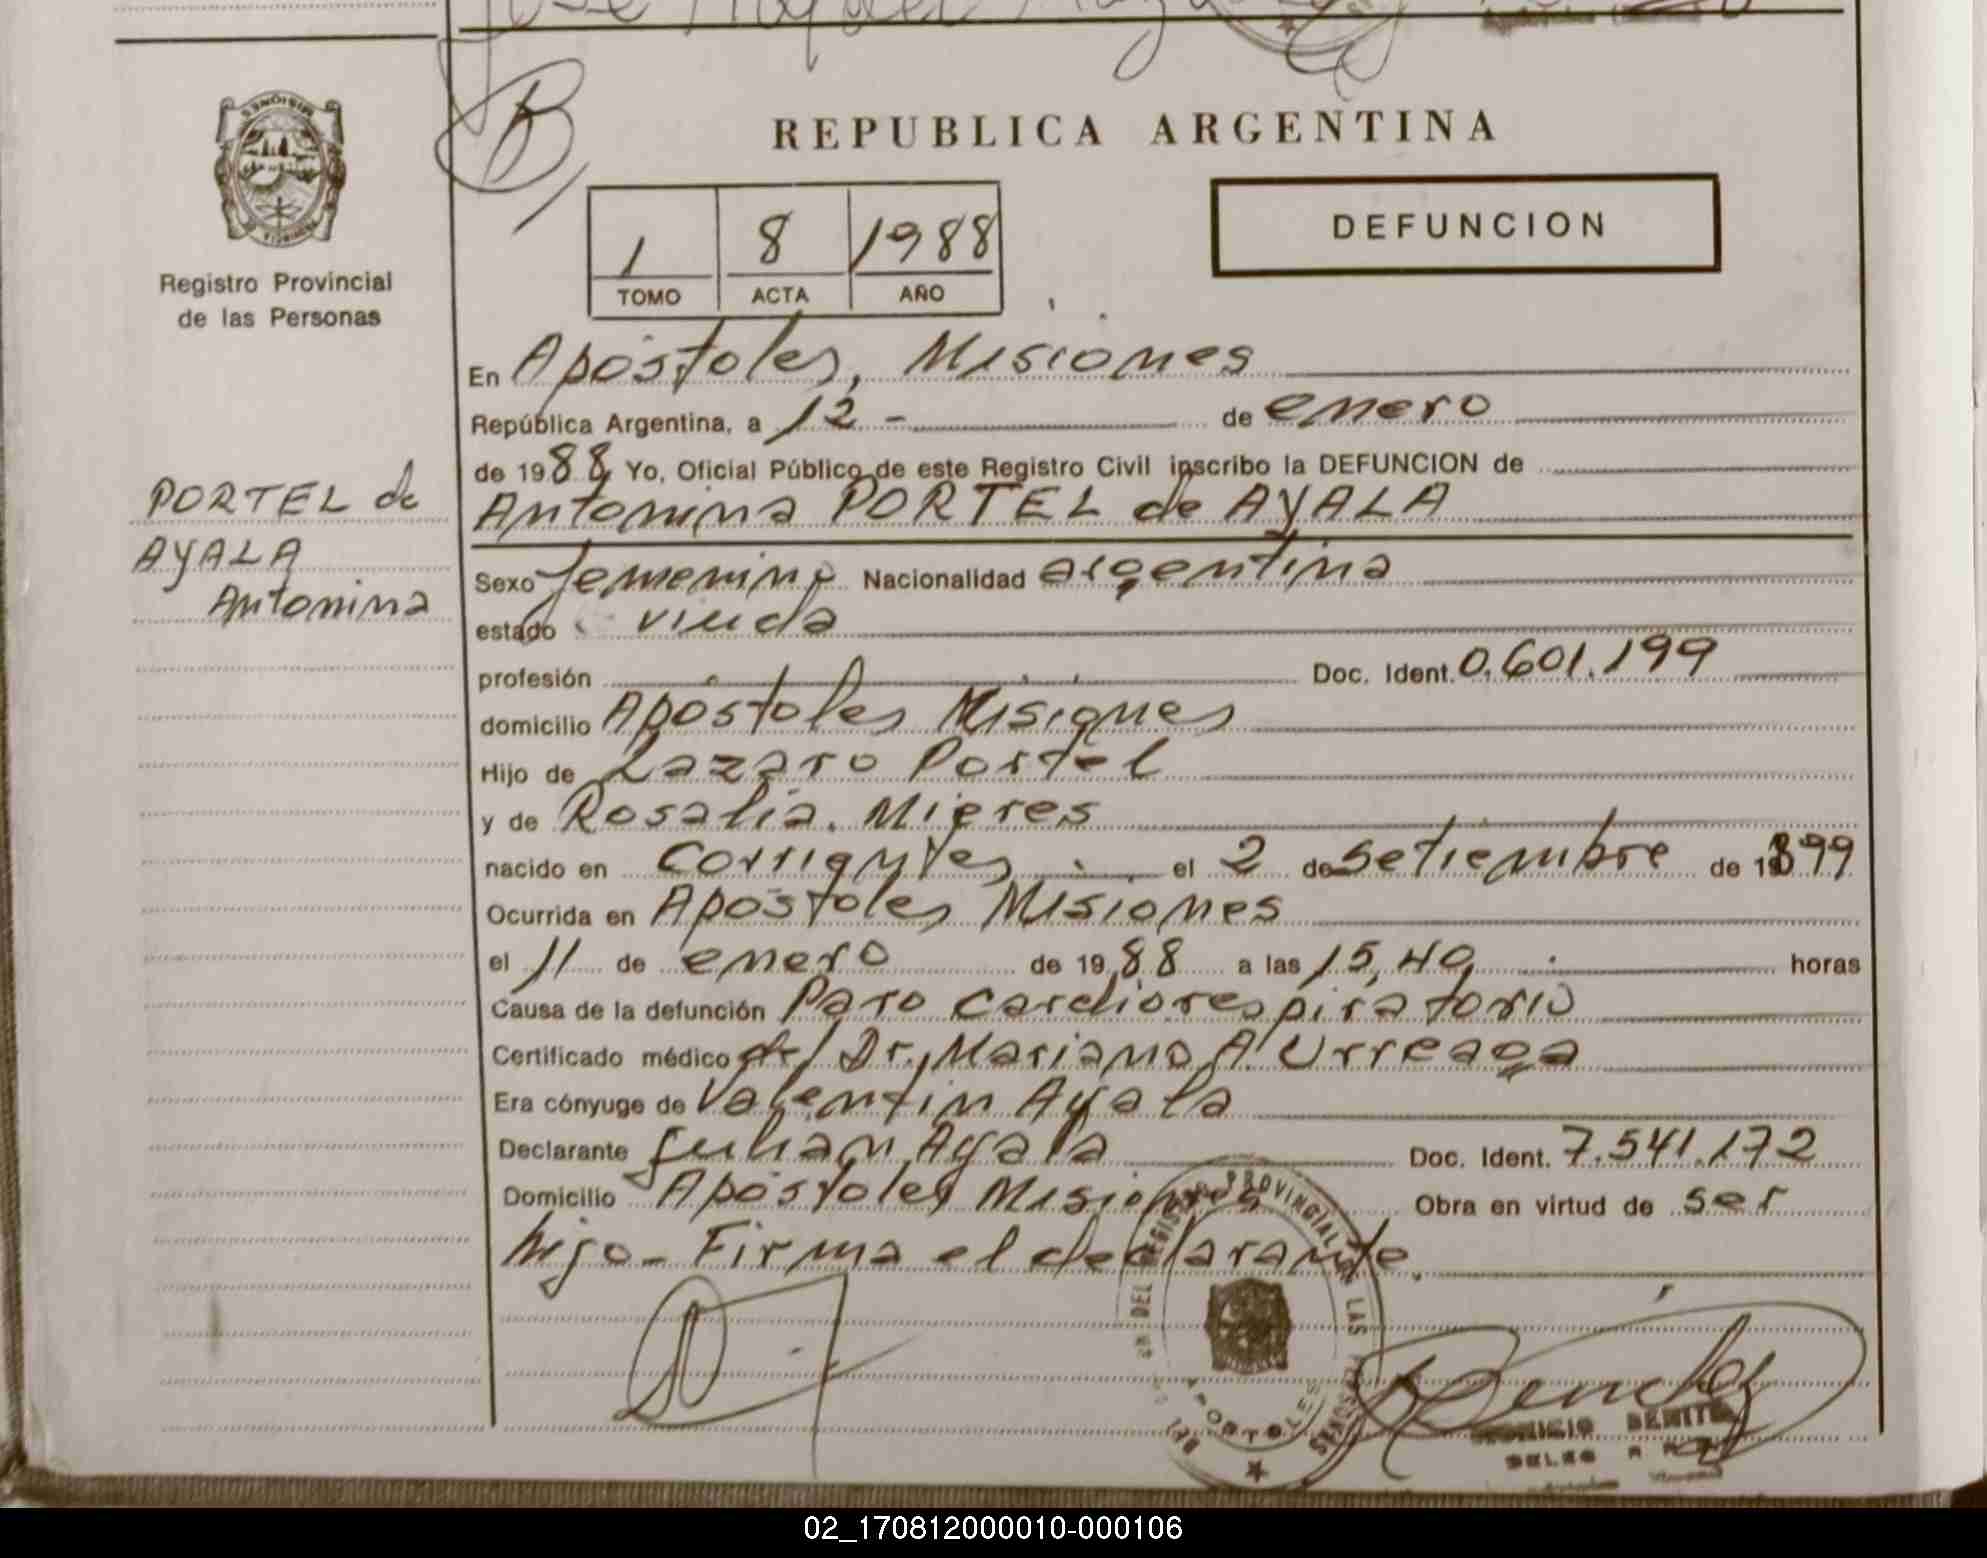 MISIONES
PROVINCIA
Registro Provincial
de las Personas
PORTEL de
AYALA
Antonina
REPUBLICA ARGENTINA
1 8 1988
TOMO ACTA AÑO
DEFUNCION
En Apóstoles, Misiones
República Argentina, a 12 - de enero
de 1988 Yo, Oficial Público de este Registro Civil inscribo la DEFUNCION de
Antonina PORTEL de AYALA
Sexo femenino Nacionalidad argentina
estado viuda
profesión Doc. Ident. 0.601.199
domicilio Apóstoles Misiones
Hijo de Lazaro Portel
y de Rosalia Mieres
nacido en Corrientes el 2 de setiembre de 1899
Ocurrida en Apóstoles Misiones
el 11 de enero de 1988 a las 15,40 horas
Causa de la defunción Paro cardiorespiratorio
Certificado médico del Dr. Mariano A. Urreaga
Era cónyuge de Valentin Ayala
Declarante Julian Ayala Doc. Ident. 7.541.172
Domicilio Apóstoles Misiones Obra en virtud de ser
hijo - Firma el declarante.
REGISTRO PROVINCIAL DE LAS PERSONAS
APOSTOLES
BENITEZ
02_170812000010-000106